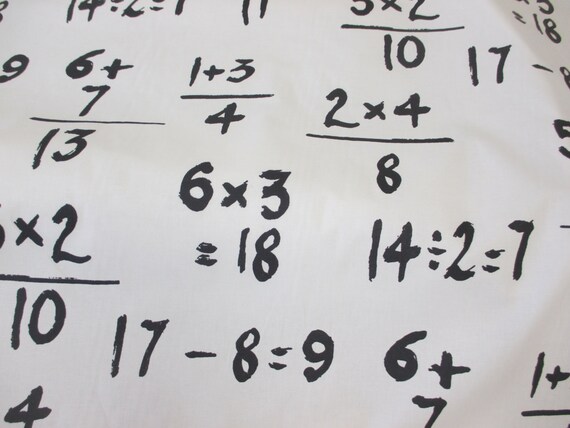 14÷2=7
5×2
10
×3
=18
17 - 8
9
6+
7
13
1+3
4
2×4
8
6×3
=18
14÷2=7
×2
10
17 - 8=9
6+
7
1+
4